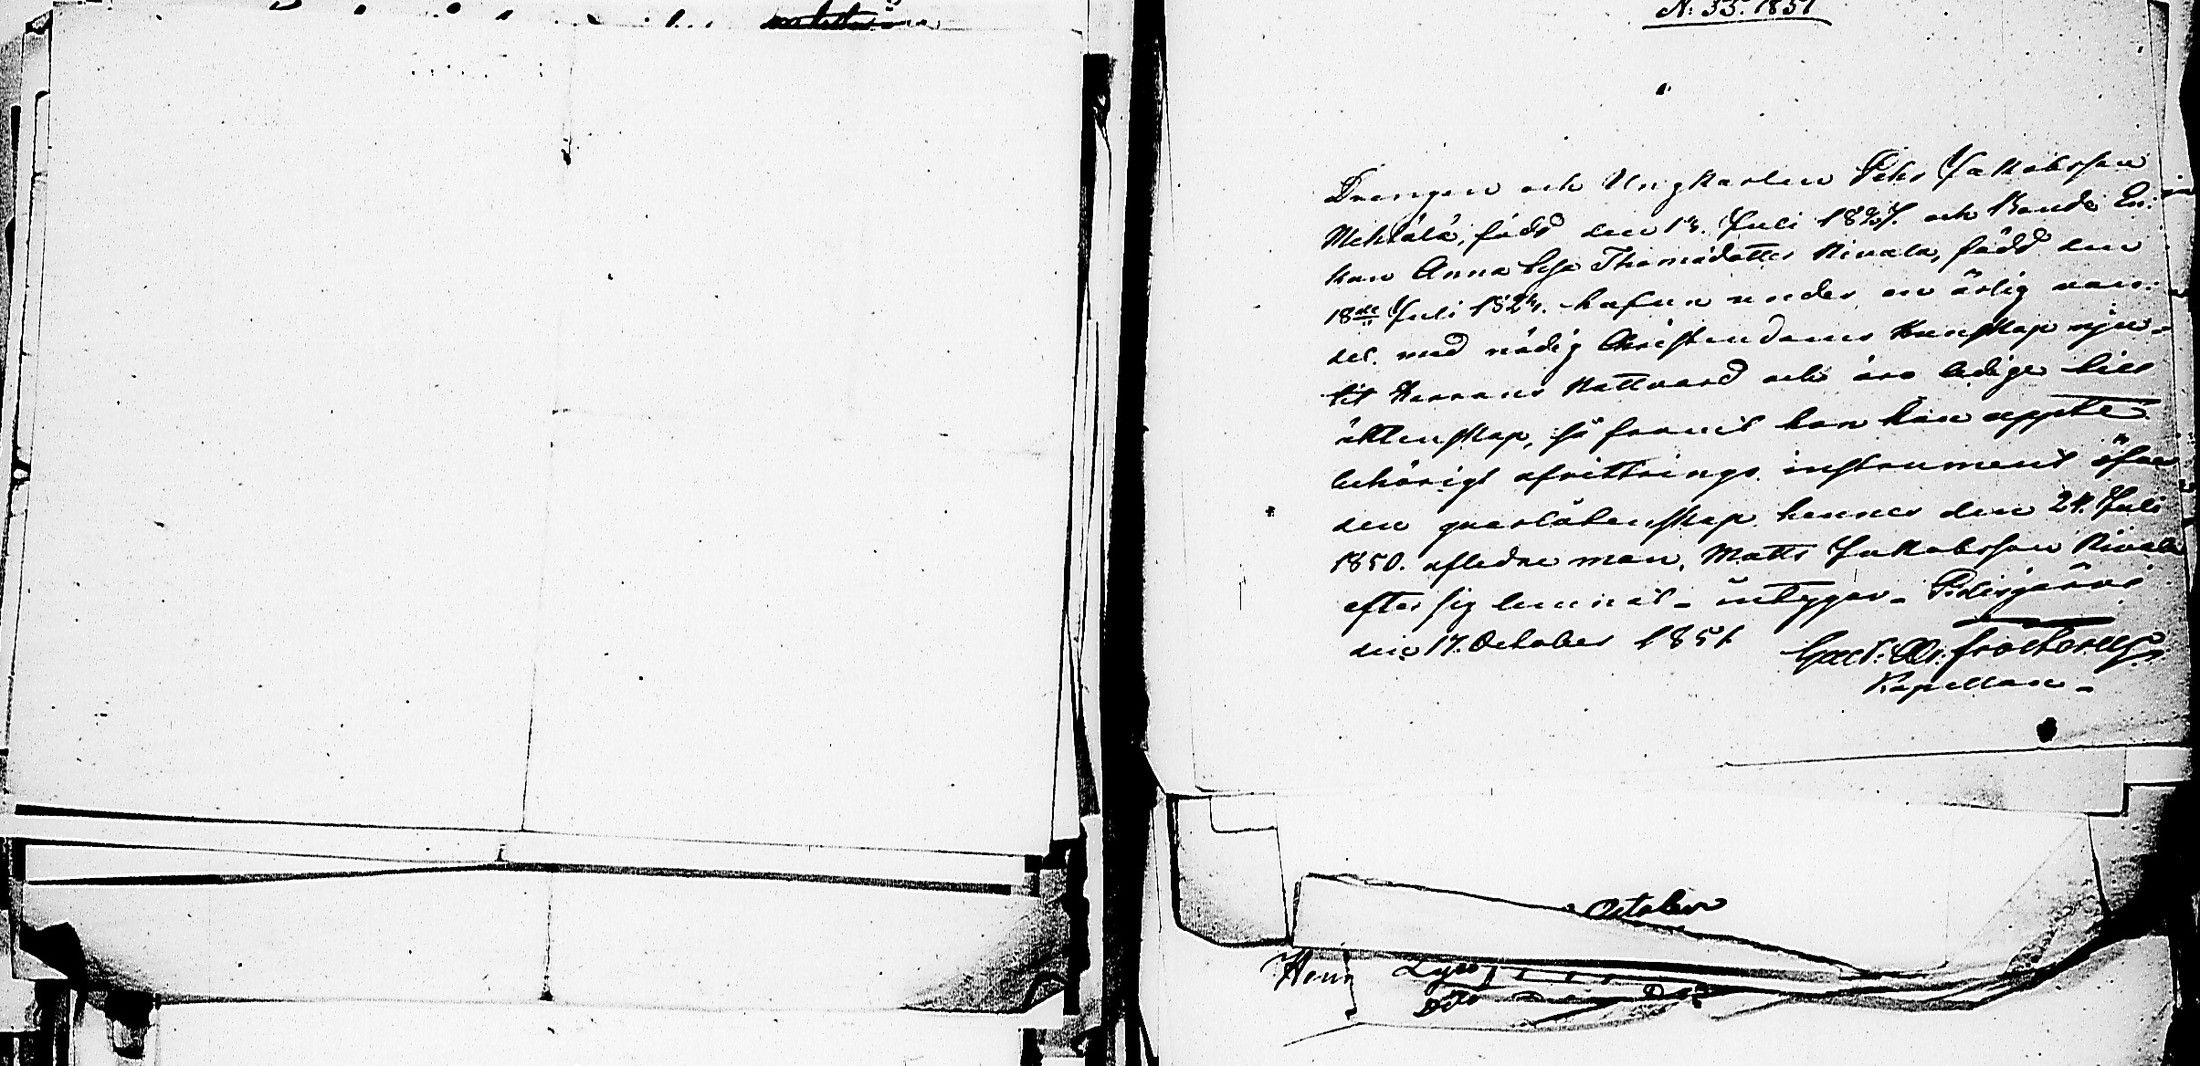 N: 33. 1851
Drengen och Ungkarlen Pehr Jakobsson
Mehtälä, född den 14. Juli 1827. och Bonde En-
kan Anna Lisa Thomsdotter Kivala, född den
18de Juli 1824. hafva under en ärlig van-
del med nödig Christendoms Kunskap nju-
tit Herrans Nattvard och äro ledige till
äktenskap, så framt hon kan uppte
behörigt afvittrings instrument öfver
den qvarlåtenskap hennes den 24. Juli
1850. afledne man, Matts Jakobsson Kivala
efter sig lemnat - intygar - Pidisjärvi
den 17. October 1851
Kapellan -
October